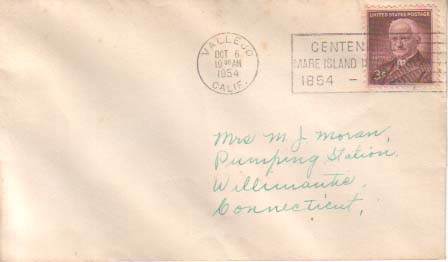 VALLEJO
OCT 6
10 30 AM
1954
CALIF.
CENTEN
MARE ISLAND
1854 -
UNITED STATES POSTAGE
3¢
Mrs M. J. Moran,
Pumping Station.
Willimantic,
Connecticut,